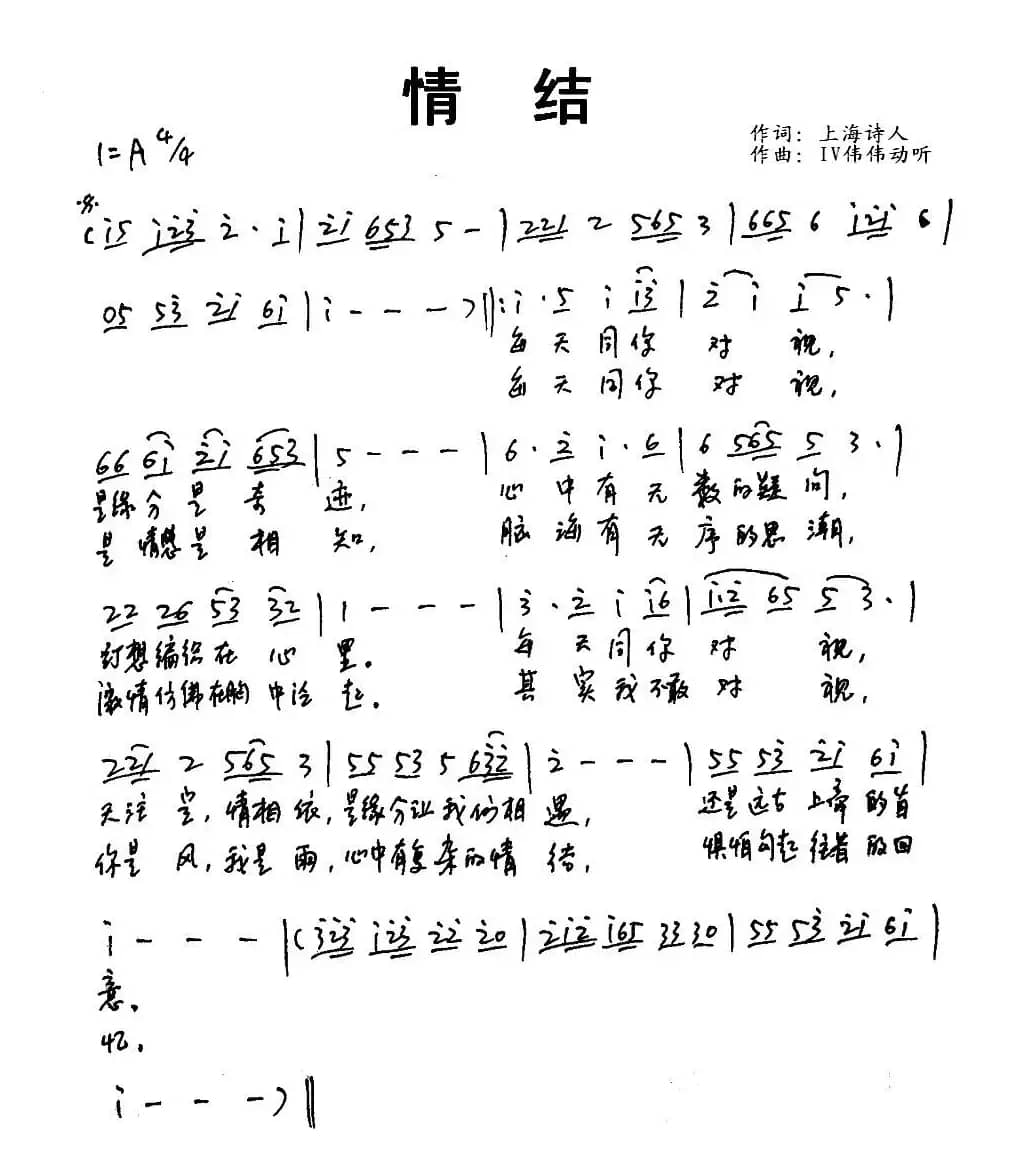 情 结
作词：上海诗人
1=A 4/4
作曲：IV伟伟动听
(i5 i23 2·i|2i 653 5 -|221 2 565 3|665 6 i2i 6|
05 53 2i 6i|i - - -)‖:i·5 i i3|2 i i 5·|
每天同你 对 视，
每天同你 对 视，
66 6i 2i 653|5 - - -|6·2 i·6|6 565 5 3·|
是缘分是 奇 迹， 心中有无数的疑问，
是情愁是 相 知， 脑海有无序的思潮，
22 26 53 32|1 - - -|3·2 i i6|ii2 65 5 3·|
幻想编织在 心 里。 每天同你 对 视，
激情仿佛在胸中泛起。 其实我不敢对 视，
221 2 565 3|55 53 5 632|2 - - -|55 53 2i 6i|
天注定，情相依，是缘分让我们相遇， 还是远古上帝的旨
你是风，我是雨，心中有复杂的情结， 惧怕勾起往昔的回
i - - -|(323 i23 22 20|2i2 i65 33 30|55 53 2i 6i|
意。
忆。
i - - -)‖